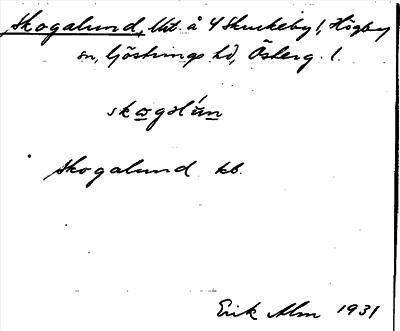 Skogalund, Utt. å 4 Skuckeby l, Högby
sn, Göstrings hd, Österg. l.
skogalún
Skogalund kb.
Erik Alm 1931